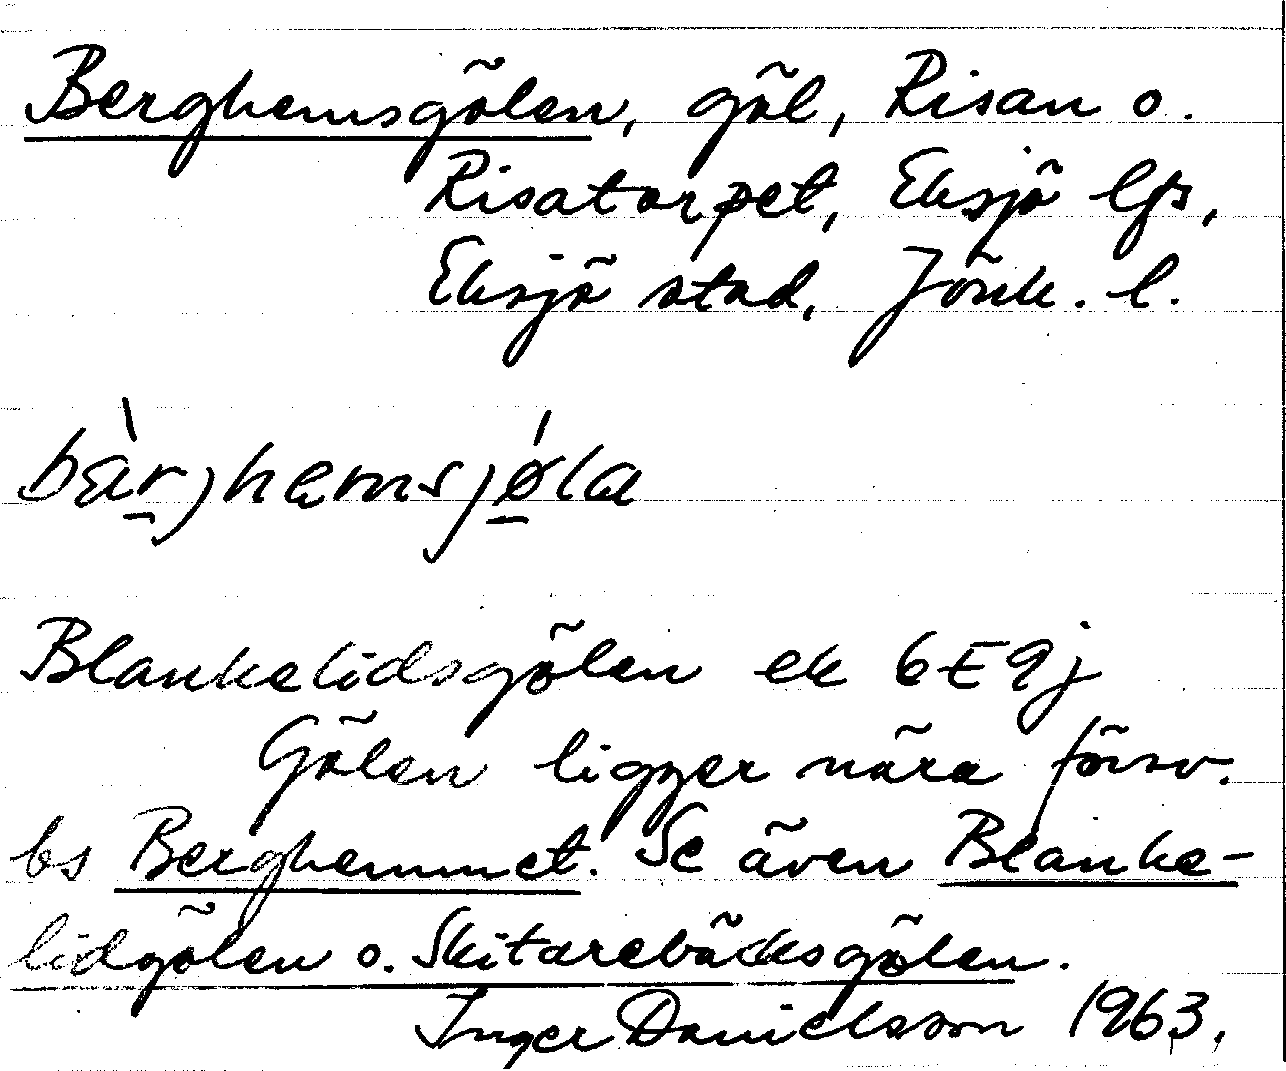 Berghemsgölen, göl, Risan o.
Risatorpet, Eksjö lfs,
Eksjö stad, Jönk. l.
bàrjhemsjǿla
Blankelidsgölen ek 6E9j
Gölen ligger nära försv.
bs Berghemmet. Se även Blanke-
lidgölen o. Skitarebäcksgölen.
Inger Danielsson 1963.